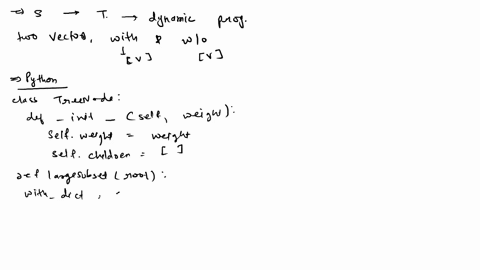 ⇒ S → T. → dynamic prog.
two vector, with & w/o
[v] [v]
⇒ Python
class TreeNode:
def _init_ (self, weight):
self.weight = weight
self.children = [ ]
def largesubset (root):
with_dict ,